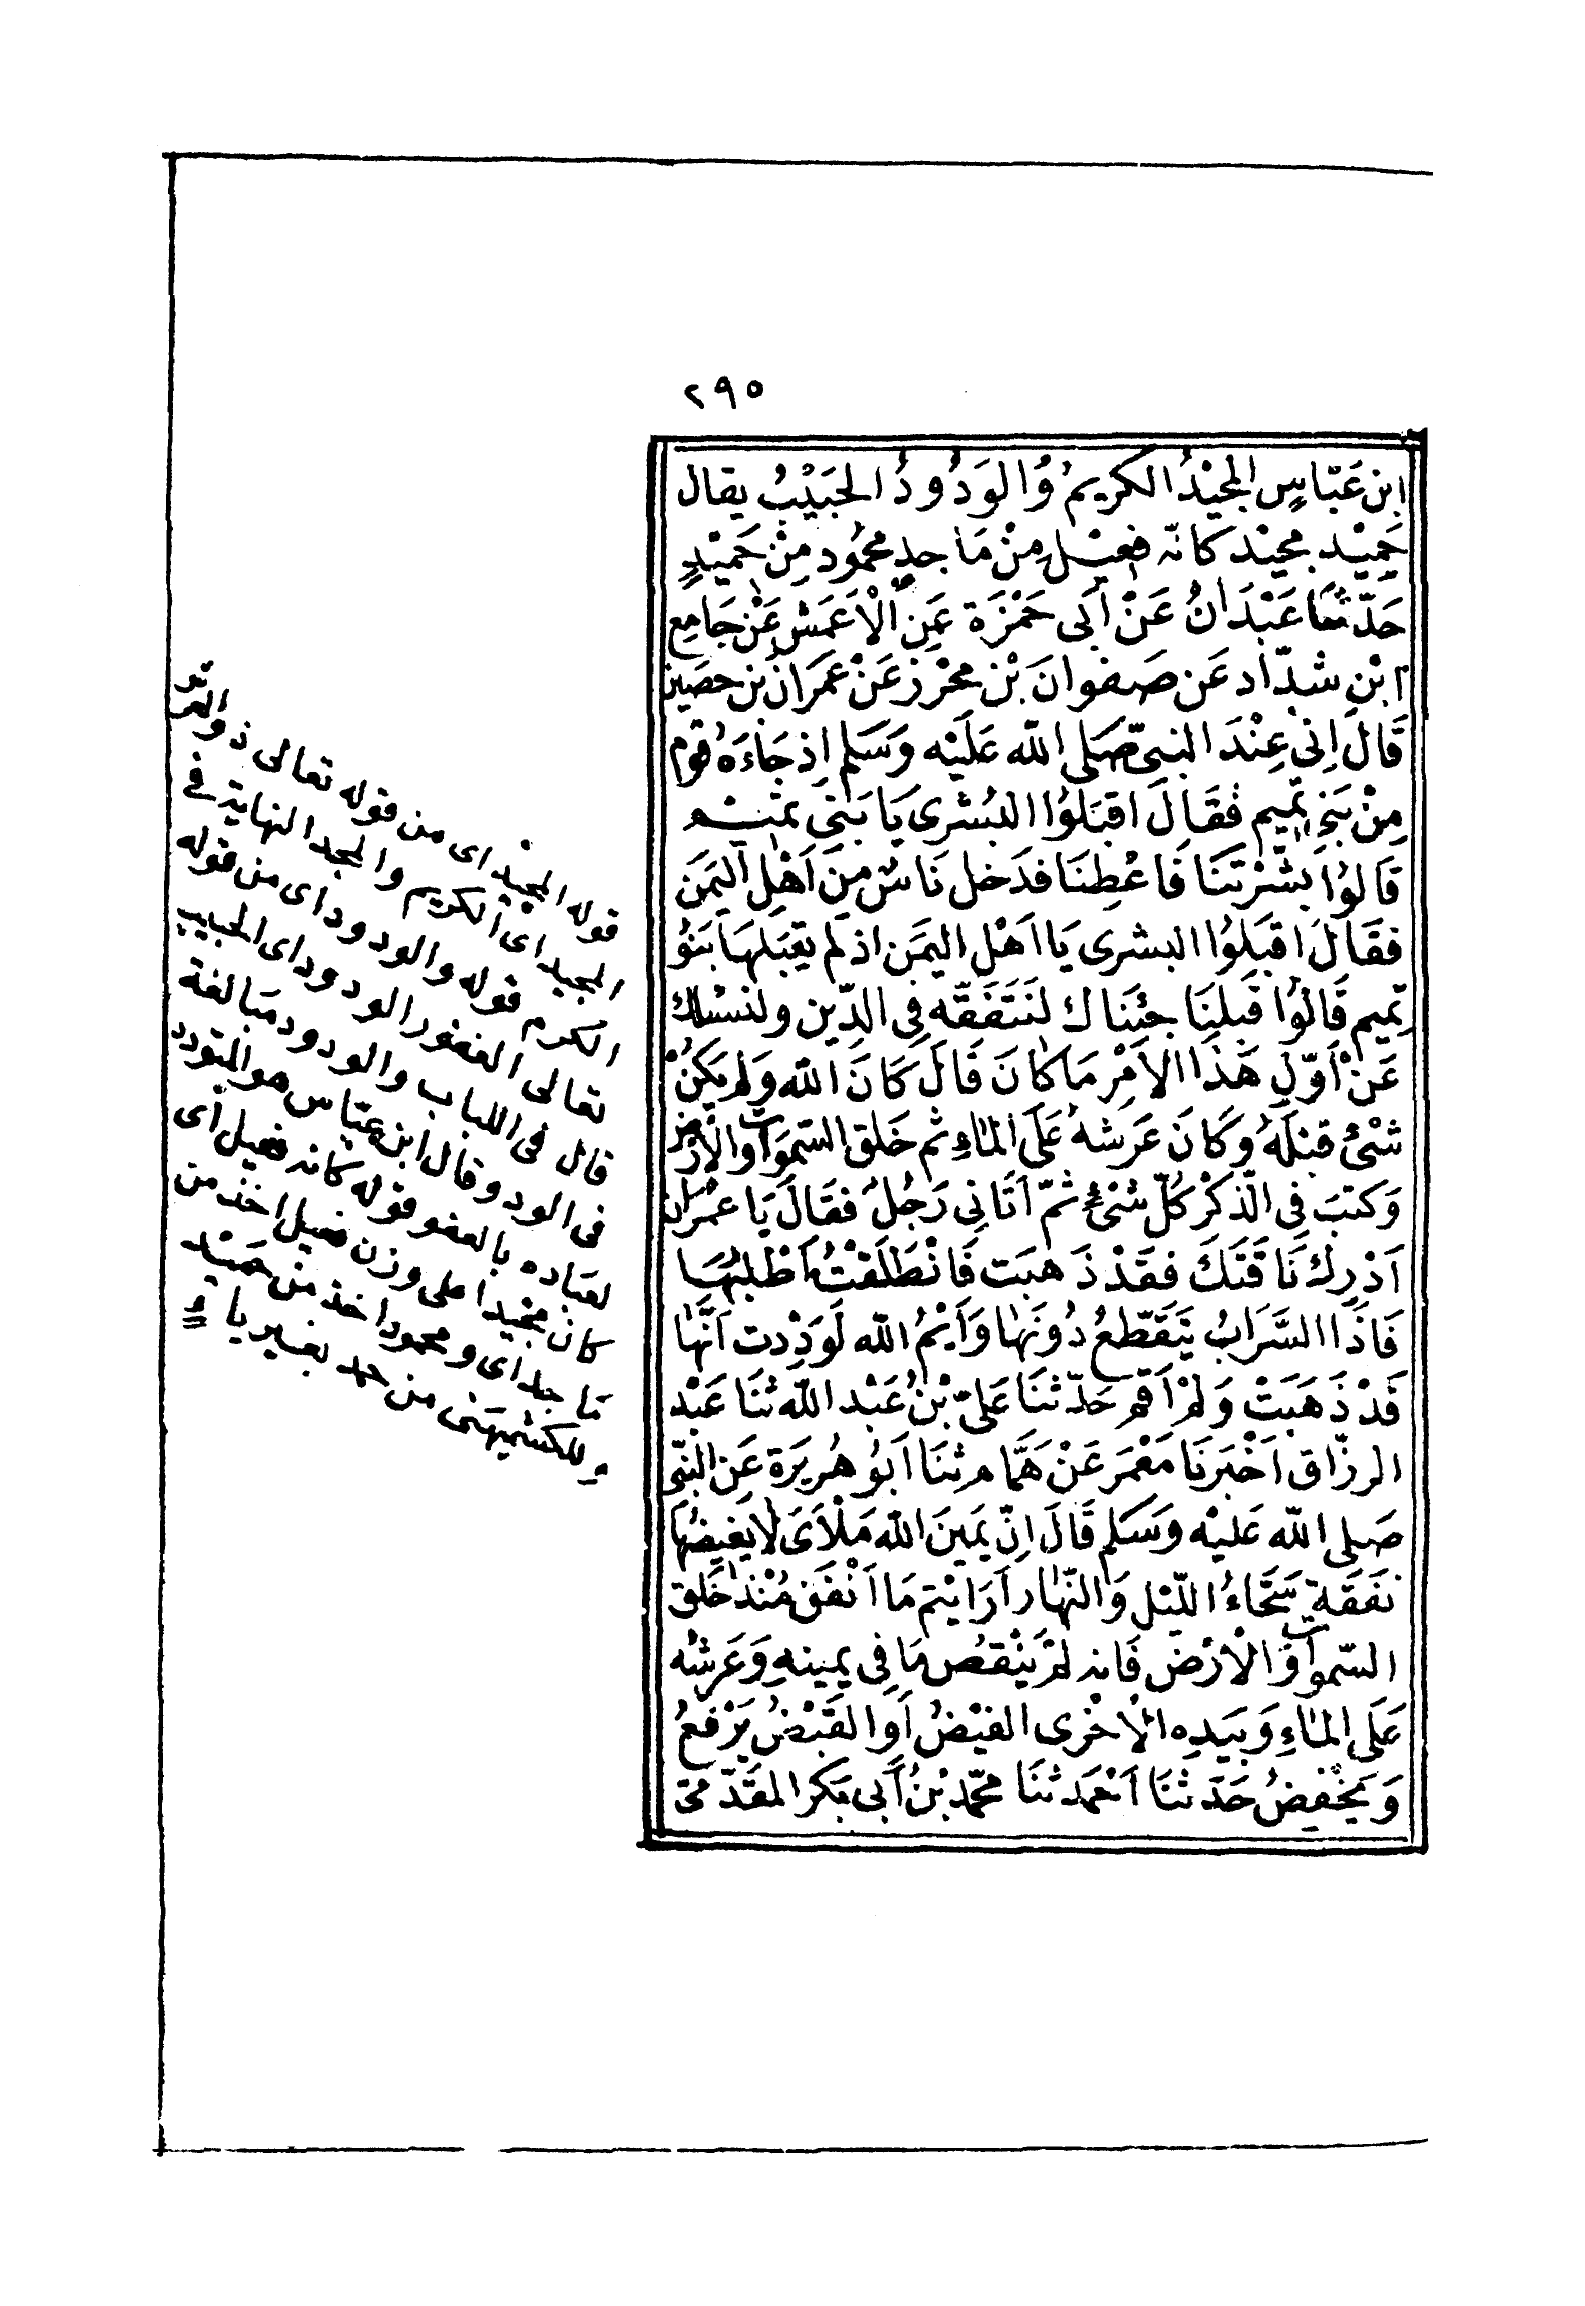 ٢٩٥
ابن عَبّاسٍ المجيْدُ الكريمُ وَالوَدُودُ الحَبيْبُ يقال
حَمِيْد مجيْد كانّه فعيْل مِنْ مَاجدٍ محمُود مِنْ حَميْدٍ
حَدّثنَا عَبْدَانُ عَنْ اَبى حَمْزَة عَنِ الْاَعَمشِ عَنْ جَامِع
ابْنِ شدّاد عَن صَفوانَ بْن محْرز عَنْ عمَرانَ بن حصَين
قَالَ اِنى عِنْدَ النبىّ صَلى الله عَلَيْه وَسَلم اِذ جَاءَهُ قوم
مِنْ بَنِى تمِيم فَقَالَ اقبَلوُا البُشرى يَا بَنى تميْم
قَالوُا بشّرْتَنَا فَاعْطِنَا فدَخل نَاسٌ مِنَ اَهْلِ اليَمَن
فقَالَ اقبَلوُا البشرى يَا اَهْل اليمَن اذ لَم يقبَلهَا بَنوُ
تمِيم قَالوُا قَبِلنَا جئنَاك لنَتَفَقّه فِى الدّين ولنسْئلك
عَنْ اَوّلِ هَذا الاَمْرِ مَا كانَ قَالَ كَانَ الله وَلم يَكنْ
شئْ قبْلهُ وَكانَ عَرشهُ عَلَى الماءِ ثم خَلق السّموَاتِ والْاَرْض
وَكتَبَ فِى الّذكْر كُلّ شئْ ثمّ اَتَانِى رَجُلُ فقَالَ يَا عمْرَان
اَدْرِك نَاقتَكَ فقَدْ ذَهبَت فَانْطَلَقْتُ اَطْلبُهَا
فَاذَا السَّرَابُ يَتقَطّعُ دُونَهَا وَاَيْمُ الله لَوَدِدت اَنَّهَا
قَدْ ذَهَبَتْ وَلمْ اَقم حَدّثنَا عَلىّ بْنُ عَبْد الله ثنَا عَبْد
الرزّاق اَخْبَرنَا مَعْمَر عَنْ هَمَّام ثنَا اَبوُ هُريرَة عَن النبّى
صَلى الله عَليْه وَسَلم قَالَ اِنّ يمَينَ الله مَلْاَىَ لا يَغيضُهَا
نَفَقَة سَحَّاءُ الليْل وَالنّهَار اَرَايْتم مَا اَنْفَق مُنْذ خَلق
السّموات وَالْاَرْض فَانه لمْ يَنْقصُ مَا فِى يمِينهِ وَعَرشُه
عَلَى الماءِ وَبيَدِه الْاخْرى الفيْضُ اَو القَبْضُ يَرْفعُ
وَيَخْفِضُ حَدّثنَا اَحْمَد ثنَا محمّد بْنُ اَبى بَكر المقَدّمىّ
قوله المجيْد اى من قوله تعالى ذو العرش
المجيد اى الكريم والمجد النهاية فى
الكرم قوله والودود اى من قوله
تعالى الغفور الودود اى الحبيب
قال فى اللباب والودود مبَالغة
فى الود وقال ابن عبّاس هو المتودد
لعباده بالعفو قوله كانه فعيل اى
كان مجيدا على وزن فعيل اخذ من
مَاجد اى ومحمود اخذ من حميْد
وللكشميهنى من حمد بغير ياء